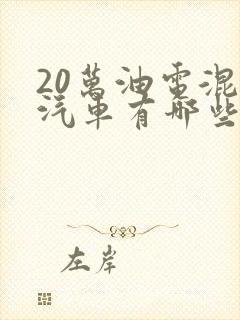 20萬油電混
汽車有哪些
左岸